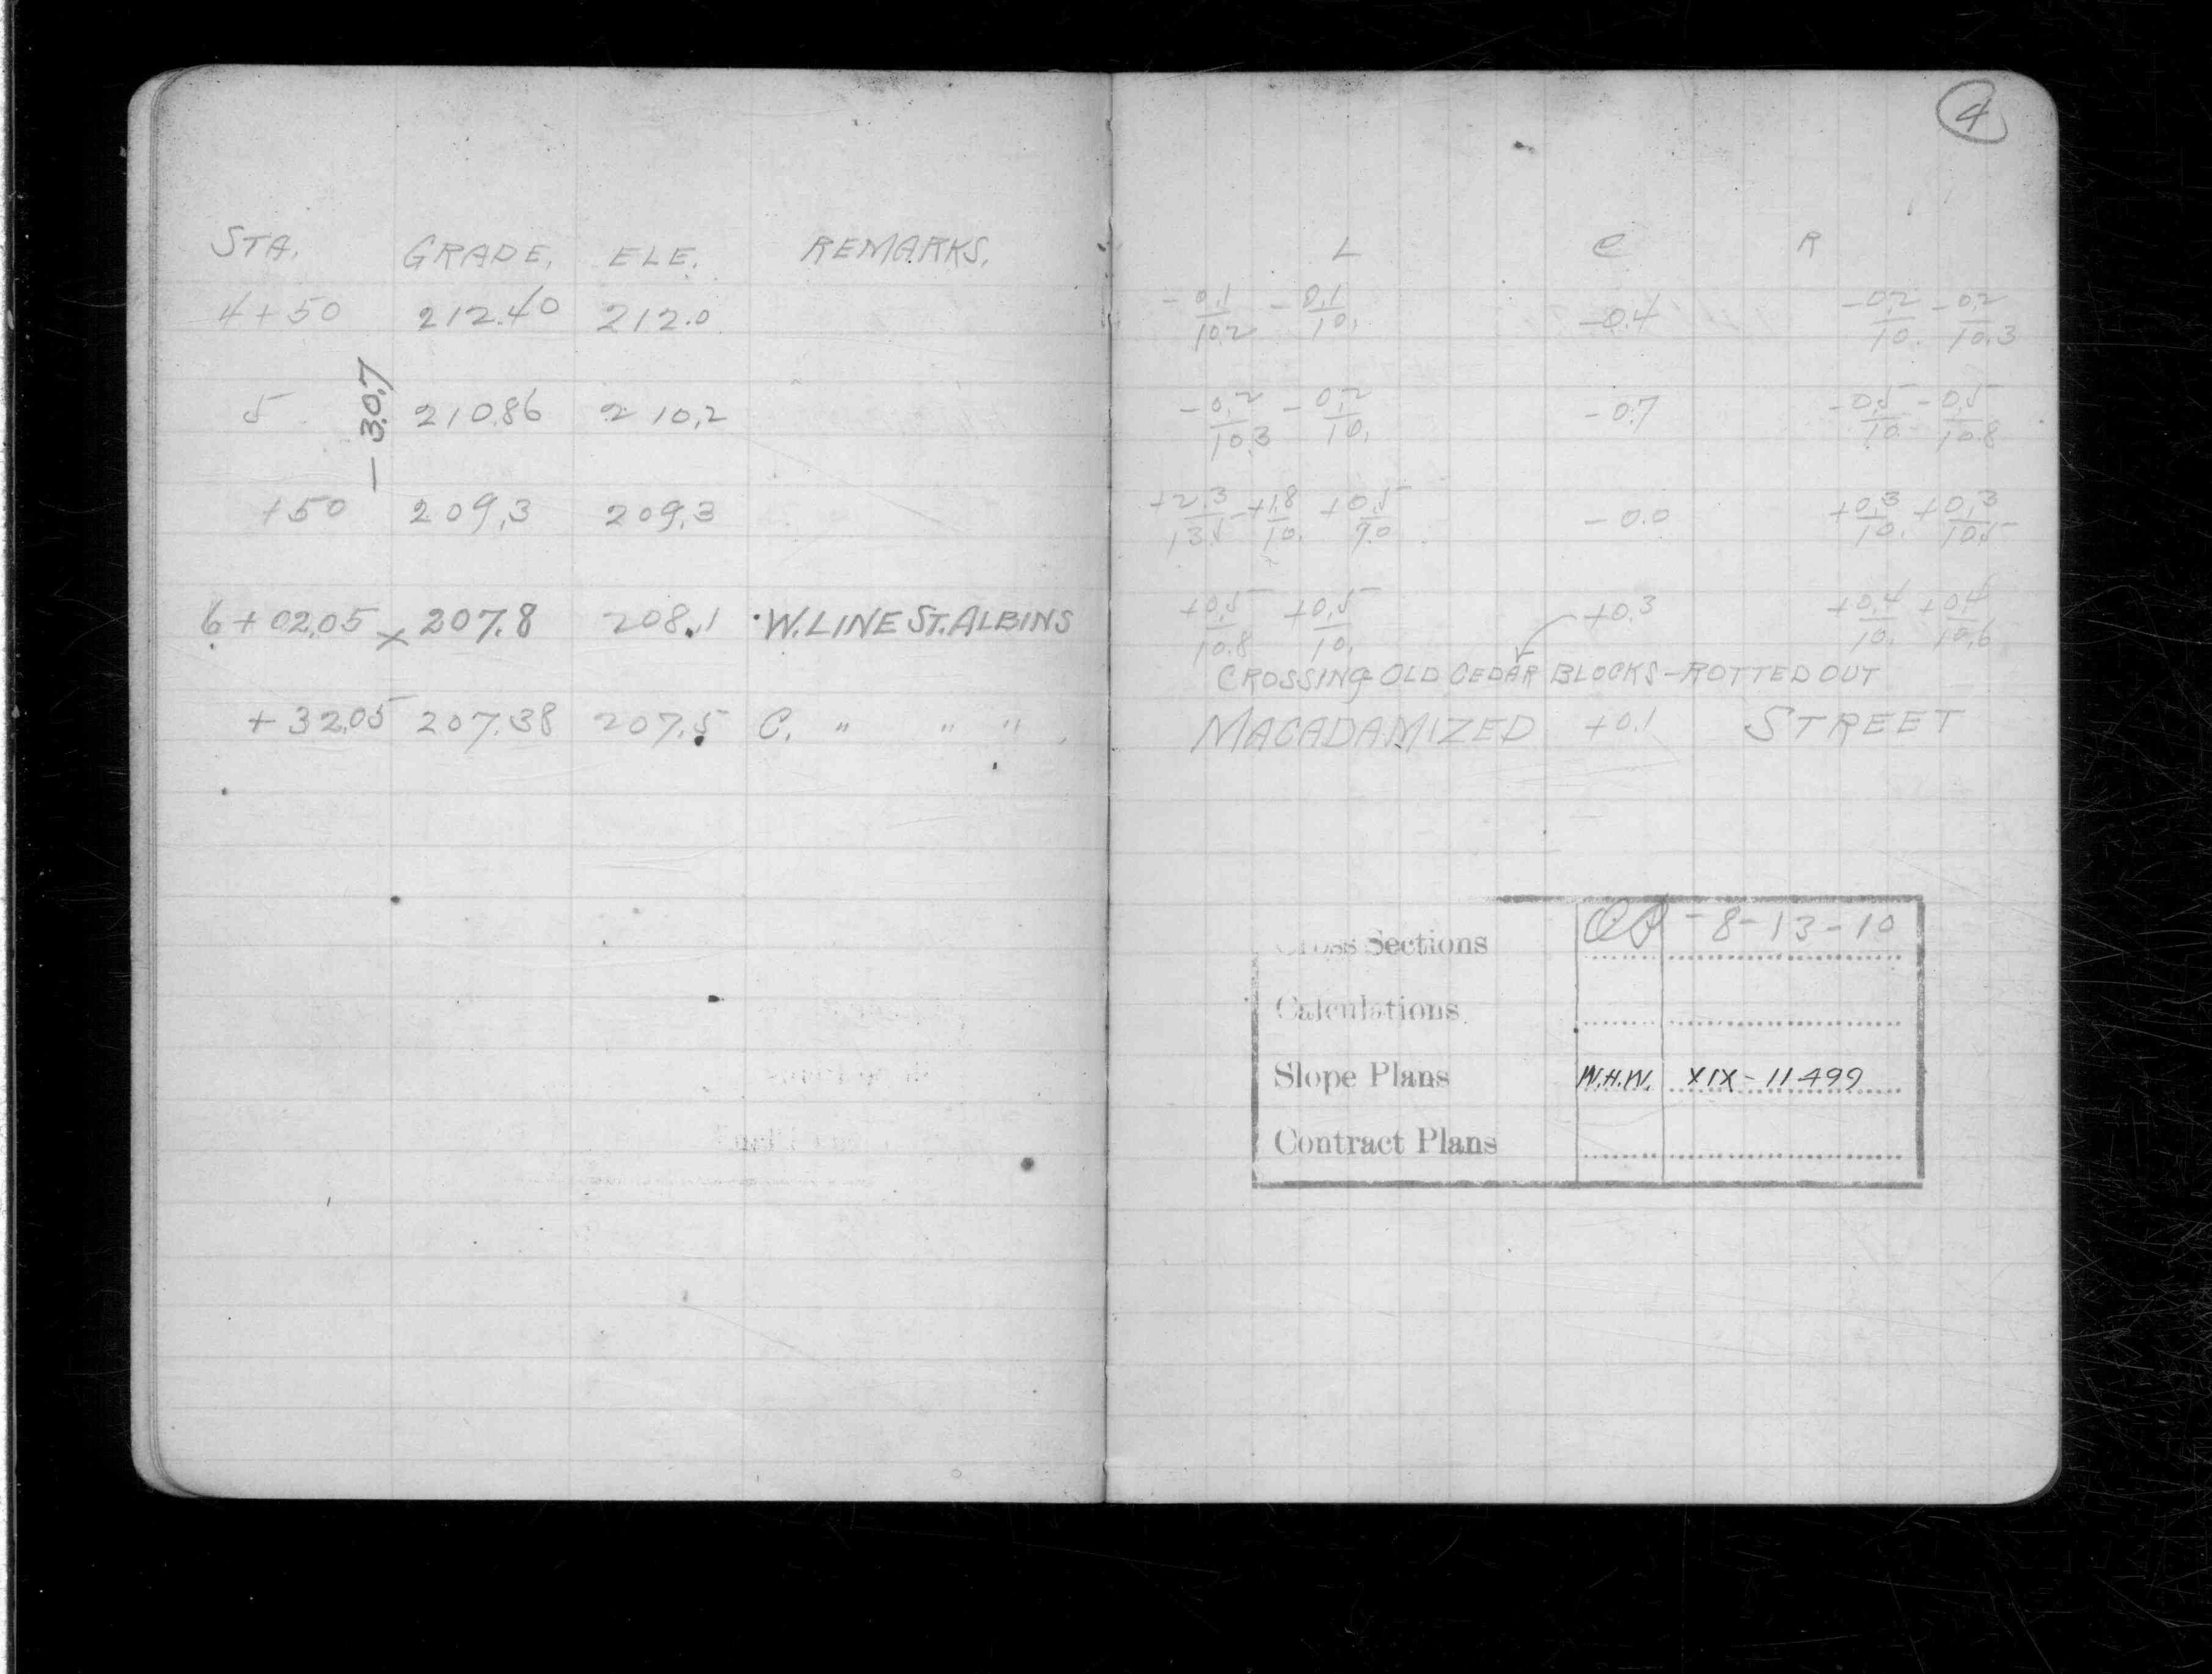 STA. GRADE. ELE. REMARKS.
4+50 212.40 212.0
— 3.07
5 210.86 210.2
+50 209.3 209.3
6+02.05 x 207.8 208.1 W. LINE ST. ALBINS
+32.05 207.38 207.5 C. " " "
4
L C R
-0.1/10.2 -0.1/10. -0.4 -0.2/10. -0.2/10.3
-0.2/10.3 -0.2/10. -0.7 -0.5/10. -0.5/10.8
+2.3/13.5 +1.8/10. +0.5/7.0 -0.0 +0.3/10. +0.3/10.5
+0.5/10.8 +0.5/10. +0.3 +0.4/10. +0.4/10.6
CROSSING OLD CEDAR BLOCKS - ROTTED OUT
MACADAMIZED +0.1 STREET
Cross Sections -8-13-10
Calculations
Slope Plans W.H.W. XIX-11499
Contract Plans